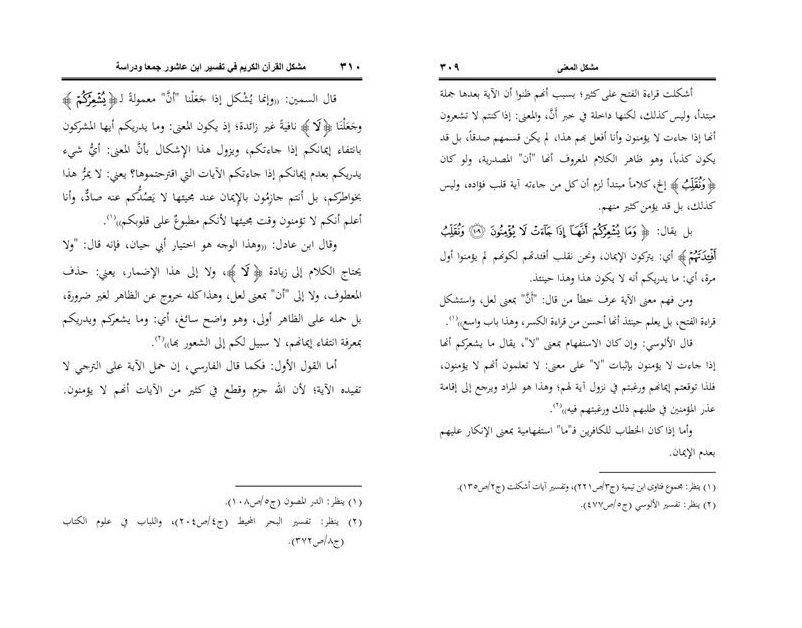 مشكل المعنى
٣٠٩
أشكلت قراءة الفتح على كثير؛ بسبب أنهم ظنوا أن الآية بعدها جملة
مبتدأ، وليس كذلك، لكنها داخلة في خبر أَنَّ، والمعنى: إذا كنتم لا تشعرون
أنها إذا جاءت لا يؤمنون وأنا أفعل بهم هذا، لم يكن قسمهم صدقاً، بل قد
يكون كذباً، وهو ظاهر الكلام المعروف أنها "أن" المصدرية، ولو كان
﴿وَنُقَلِّبُ﴾ إلخ، كلاماً مبتدأ لزم أن كل من جاءته آية قلب فؤاده، وليس
كذلك، بل قد يؤمن كثير منهم.
بل يقال: ﴿وَمَا يُشْعِرُكُمْ أَنَّهَا إِذَا جَاءَتْ لَا يُؤْمِنُونَ ۝١٠٩ وَنُقَلِّبُ
أَفْئِدَتَهُمْ﴾ أي: يتركون الإيمان، ونحن نقلب أفئدتهم لكونهم لم يؤمنوا أول
مرة، أي: ما يدريكم أنه لا يكون هذا وهذا حينئذ.
ومن فهم معنى الآية عرف خطأ من قال: "أنَّ" بمعنى لعل، واستشكل
قراءة الفتح، بل يعلم حينئذ أنها أحسن من قراءة الكسر، وهذا باب واسع))(١).
قال الألوسي: وإن كان الاستفهام بمعنى "لا"، يقال ما يشعركم أنها
إذا جاءت لا يؤمنون بإثبات "لا" على معنى: لا تعلمون أنهم لا يؤمنون،
فلذا توقعتم إيمانهم ورغبتم في نزول آية لهم؛ وهذا هو المراد ويرجع إلى إقامة
عذر المؤمنين في طلبهم ذلك ورغبتهم فيه))(٢).
وأما إذا كان الخطاب للكافرين فـ"ما" استفهامية بمعنى الإنكار عليهم
بعدم الإيمان.
(١) ينظر: مجموع فتاوى ابن تيمية (ج٣/ص٢٢١)، وتفسير آيات أشكلت (ج٢/ص١٣٥).
(٢) ينظر: تفسير الألوسي (ج٥/ص٤٧٧).
٣١٠
مشكل القرآن الكريم في تفسير ابن عاشور جمعا ودراسة
قال السمين: ((وإنما يُشْكل إذا جَعَلْنا "أنَّ" معمولةً لـ ﴿يُشْعِرُكُمْ﴾
وجَعَلْنَا ﴿لَا﴾ نافيةً غير زائدة؛ إذ يكون المعنى: وما يدريكم أيها المشركون
بانتفاء إيمانكم إذا جاءتكم، ويزول هذا الإشكال بأنَّ المعنى: أيُّ شيء
يدريكم بعدم إيمانكم إذا جاءتكم الآيات التي اقترحتموها؟ يعني: لا يمرُّ هذا
بخواطركم، بل أنتم جازمُون بالإيمان عند مجيئها لا يَصُدُّكم عنه صادٌّ، وأنا
أعلم أنكم لا تؤمنون وقت مجيئها لأنكم مطبوعٌ على قلوبكم))(١).
وقال ابن عادل: ((وهذا الوجه هو اختيار أبي حيان، فإنه قال: "ولا
يحتاج الكلام إلى زيادة ﴿لَا﴾، ولا إلى هذا الإضمار، يعني: حذف
المعطوف، ولا إلى "أن" بمعنى لعل، وهذا كله خروج عن الظاهر لغير ضرورة،
بل حمله على الظاهر أولى، وهو واضح سائغ، أي: وما يشعركم ويدريكم
بمعرفة انتفاء إيمانهم، لا سبيل لكم إلى الشعور بها))(٢).
أما القول الأول: فكما قال الفارسي، إن حمل الآية على الترجي لا
تفيده الآية؛ لأن الله جزم وقطع في كثير من الآيات أنهم لا يؤمنون.
(١) ينظر: الدر المصون (ج٥/ص١٠٨).
(٢) ينظر: تفسير البحر المحيط (ج٤/ص٢٠٤)، واللباب في علوم الكتاب
(ج٨/ص٣٧٢).